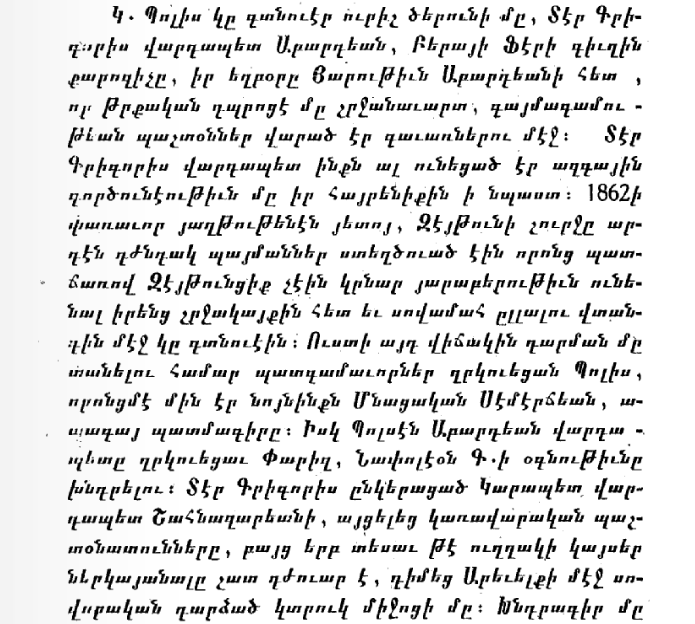 Կ. Պոլիս կը գտնուէր ուրիշ ծերունի մը, Տէր Գրի-
գորիս վարդապետ Աբարդեան, Բերայի Ֆէրի գիւղին
քարոզիչը, իր եղբօրը Յարութիւն Աբարդեանի հետ ,
որ Թրքական դպրոցէ մը շրջանաւարտ, գայմագամու -
թեան պաշտօններ վարած էր գաւառներու մէջ։ Տէր
Գրիգորիս վարդապետ ինքն ալ ունեցած էր ազգային
գործունէութիւն մը իր Հայրենիքին ի նպաստ։ 1862ի
փառաւոր յաղթութենէն յետոյ, Զէյթունի շուրջը ար-
դէն դժնդակ պայմաններ ստեղծուած էին որոնց պատ-
ճառով Զէյթունցիք չէին կրնար յարաբերութիւն ունե-
նալ իրենց շրջակայքին հետ եւ սովամահ ըլլալու վտան-
գին մէջ կը գտնուէին։ Ուստի այդ վիճակին դարման մը
տանելու համար պատգամաւորներ ղրկուեցան Պոլիս,
որոնցմէ մին էր նոյնինքն Մնացական Սէմէրճեան, ա-
պագայ պատմագիրը։ Իսկ Պոլսէն Աբարդեան վարդա -
պետը ղրկուեցաւ Փարիզ, Նափոլէօն Գ.ի օգնութիւնը
խնդրելու։ Տէր Գրիգորիս ընկերացած Կարապետ վար-
դապետ Շահնազարեանի, այցելեց կառավարական պաշ-
տօնատունները, բայց երբ տեսաւ թէ ուղղակի կայսեր
ներկայանալը շատ դժուար է, դիմեց Արեւելքի մէջ սո-
վորական դարձած կտրուկ միջոցի մը։ Խնդրագիր մը